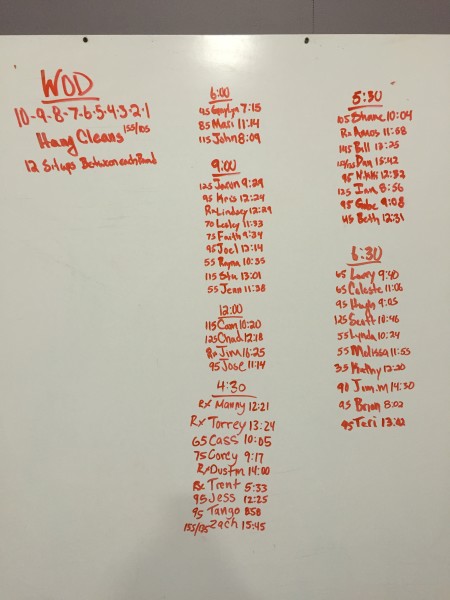 WOD
10-9-8-7-6-5-4-3-2-1
Hang Cleans 155/105
12 Situps Between each Round
6:00
7:15
85 Mari 11:14
115 John 8:09
9:00
125 Jaron 9:29
95 Kris 12:24
Rx Lindsey 12:29
70 Lesley 11:33
75 Faith 9:34
95 Joel 12:14
55 Rayna 10:35
115 Stu 13:01
55 Jenn 11:38
12:00
115 Cam 10:20
125 Chad 12:18
Rx Jim 16:25
95 Jose 11:14
4:30
Rx Manny 12:21
Rx Torrey 13:24
65 Cass 10:05
75 Corey 9:17
Rx Dustin 14:00
Rx Trent 5:33
95 Jess 12:25
95 Tango 8:58
155/135 Zach 15:45
5:30
105 Shane 10:04
Rx Amos 11:58
145 Bill 13:25
Dan 15:42
95 Nikki 12:32
125 Ian 8:56
95 Gabe 9:08
45 Beth 12:31
6:30
65 Larry 9:40
65 Celeste 11:06
95 Hugh 9:05
125 Scott 10:46
55 Lynda 10:24
55 Melissa 11:53
35 Kathy 12:20
90 Jim.M 14:30
95 Brian 8:02
95 Teri 13:02